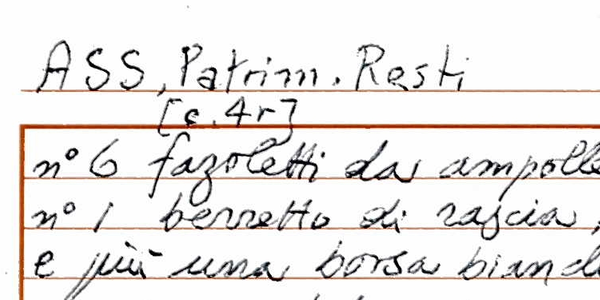 ASS, Patrim. Resti
[c. 4r]
n° 6 fazoletti da ampolle
n° 1 berretto di rascia,
e più una borsa